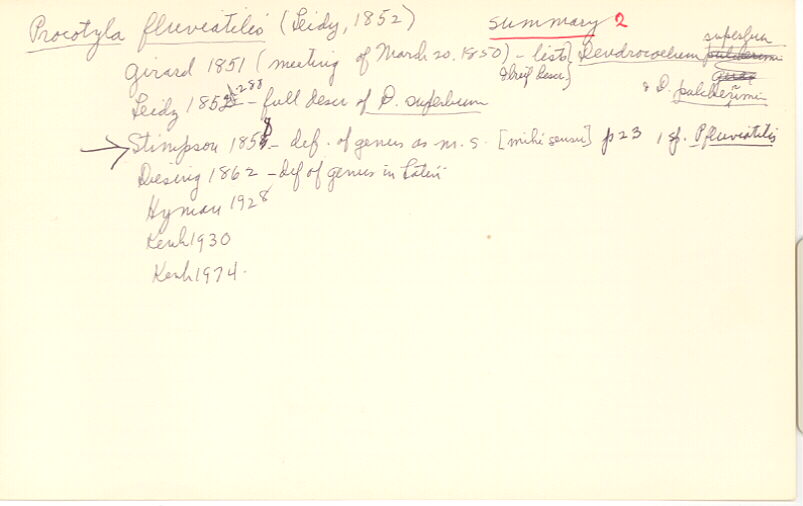 Procotyla fluviatilis (Leidy, 1852) summary 2
Girard 1851 (meeting of March 20, 1850) - lists Dendrocoelum superbum
& brief descr & D. pulcherrimi
Leidy 1852 - 288 - full descr of D. superbum
Stimpson 1858 - def. of genus as m. s. [mihi sensu] p 23 1 sp. P fluviatilis
Diesing 1862 - def of genus in Latin
Hyman 1928
Kenk 1930
Kenk 1974.